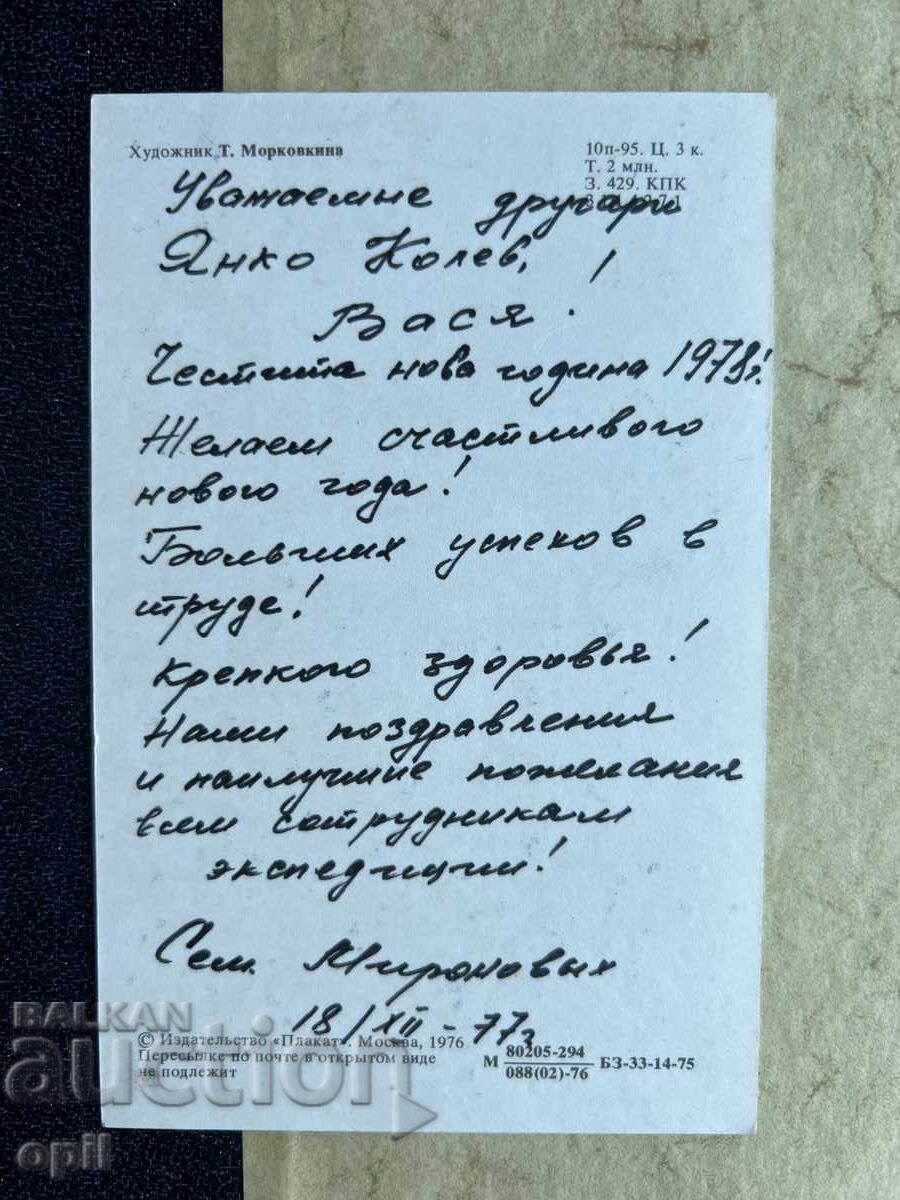 Художник Т. Морковкина
10п-95. Ц. 3 к.
Т. 2 млн.
З. 429. КПК
Уважаемые другари
Янко Колев,
Вася!
Честита нова година 1978г!
Желаем счастливого
нового года!
Больших успехов в
труде!
Крепкого здоровья!
Наши поздравления
и наилучшие пожелания
всем сотрудникам
экспедиции!
Сем. Мироновых
18/XII-77г
© Издательство «Плакат». Москва, 1976
Пересылке по почте в открытом виде
не подлежит
М 80205-294 БЗ-33-14-75
088(02)-76
BALKAN
auction
opil